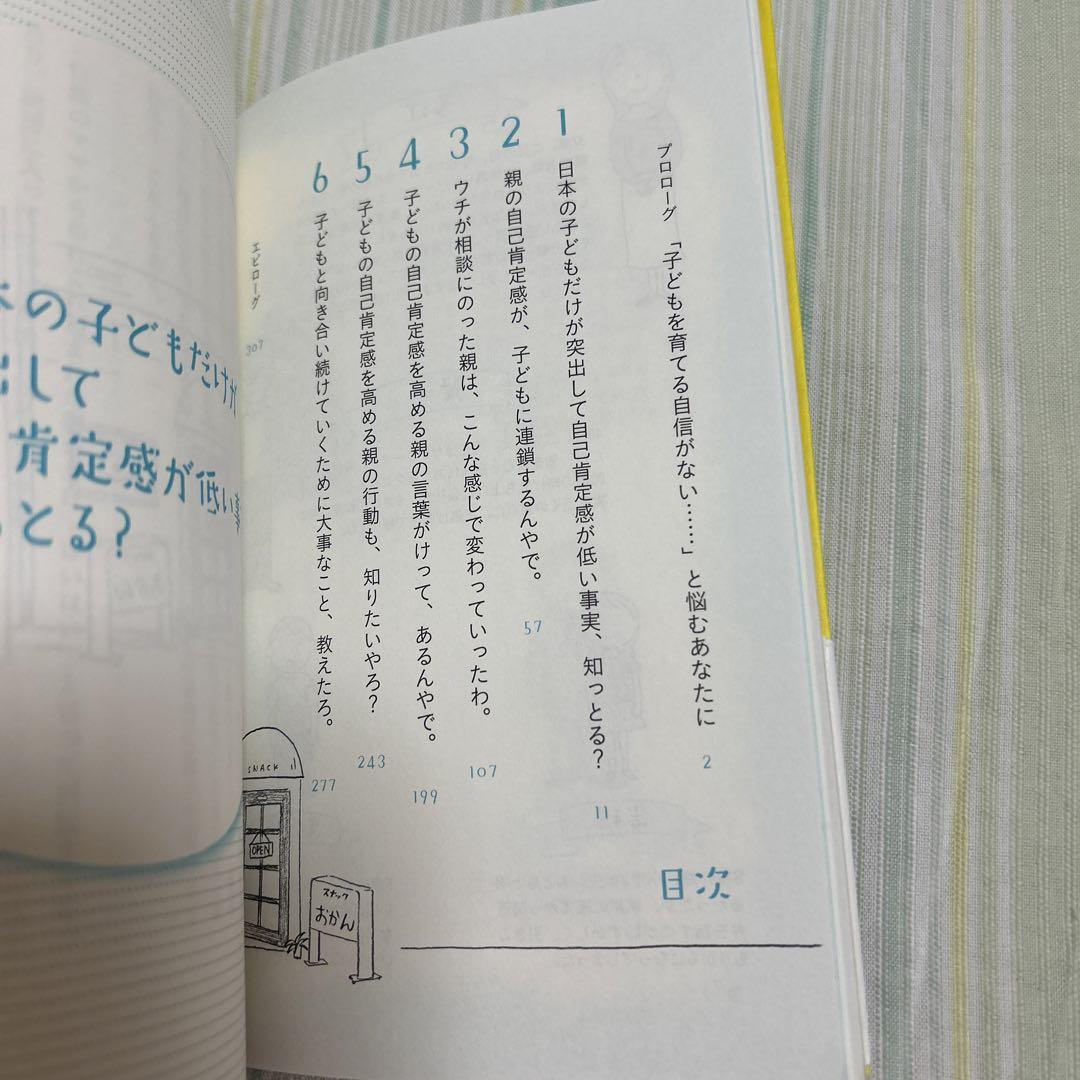 目次
プロローグ 「子どもを育てる自信がない……」と悩むあなたに 2
1 日本の子どもだけが突出して自己肯定感が低い事実、知っとる? 11
2 親の自己肯定感が、子どもに連鎖するんやで。 57
3 ウチが相談にのった親は、こんな感じで変わっていったわ。 107
4 子どもの自己肯定感を高める親の言葉がけって、あるんやで。 199
5 子どもの自己肯定感を高める親の行動も、知りたいやろ? 243
6 子どもと向き合い続けていくために大事なこと、教えたろ。 277
エピローグ 307
SNACK
OPEN
スナック
おかん
の子どもだけが
して
肯定感が低い事
とる?